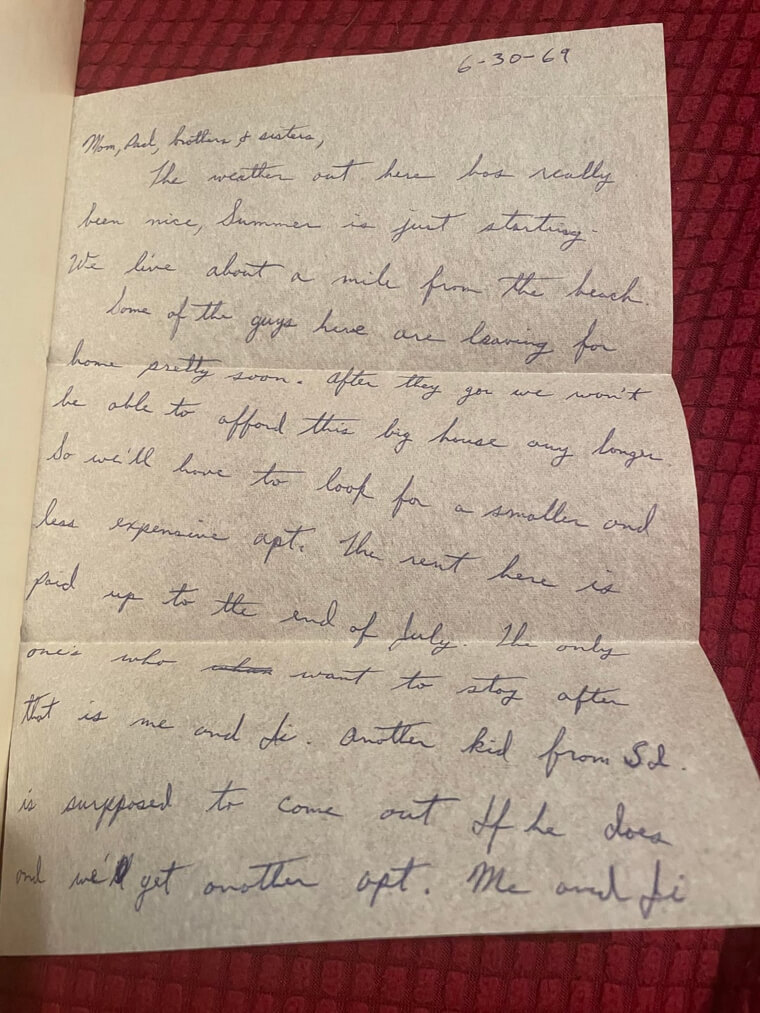 6-30-69
Mom, Dad, brothers & sisters,
The weather out here has really
been nice, Summer is just starting.
We live about a mile from the beach.
Some of the guys here are leaving for
home pretty soon. After they go we won't
be able to afford this big house any longer.
So we'll have to look for a smaller and
less expensive apt. The rent here is
paid up to the end of July. The only
one's who want to stay after
that is me and Di. Another kid from S.I.
is surpposed to come out If he does
and we'll get another apt. Me and Di